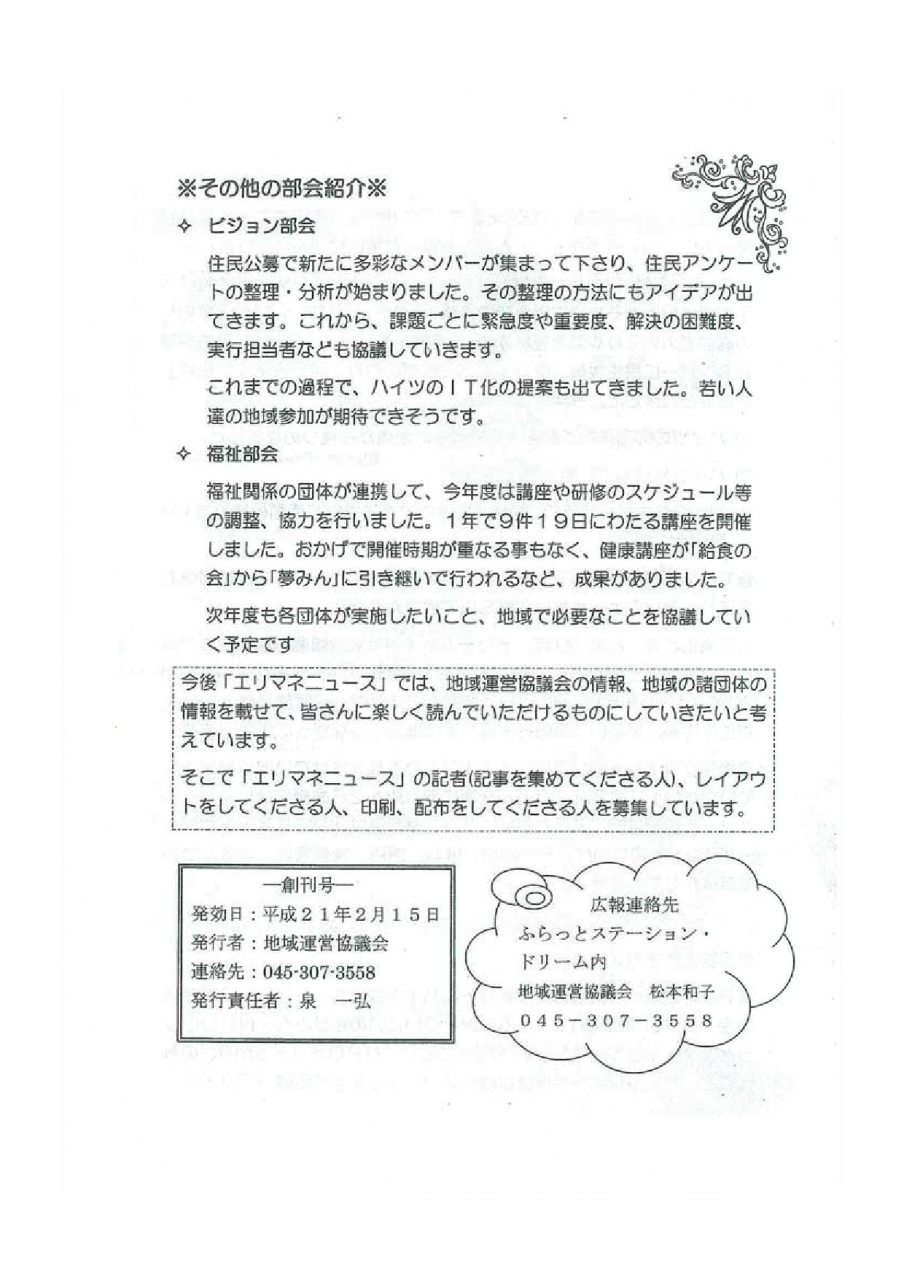 ※その他の部会紹介※
✧ ビジョン部会
住民公募で新たに多彩なメンバーが集まって下さり、住民アンケー
トの整理・分析が始まりました。その整理の方法にもアイデアが出
てきます。これから、課題ごとに緊急度や重要度、解決の困難度、
実行担当者なども協議していきます。
これまでの過程で、ハイツのＩＴ化の提案も出てきました。若い人
達の地域参加が期待できそうです。
✧ 福祉部会
福祉関係の団体が連携して、今年度は講座や研修のスケジュール等
の調整、協力を行いました。１年で９件１９日にわたる講座を開催
しました。おかげで開催時期が重なる事もなく、健康講座が「給食の
会」から「夢みん」に引き継いで行われるなど、成果がありました。
次年度も各団体が実施したいこと、地域で必要なことを協議してい
く予定です
今後「エリマネニュース」では、地域運営協議会の情報、地域の諸団体の
情報を載せて、皆さんに楽しく読んでいただけるものにしていきたいと考
えています。
そこで「エリマネニュース」の記者(記事を集めてくださる人)、レイアウ
トをしてくださる人、印刷、配布をしてくださる人を募集しています。
―創刊号―
発効日：平成２１年２月１５日
発行者：地域運営協議会
連絡先：045-307-3558
発行責任者：泉　一弘
広報連絡先
ふらっとステーション・
ドリーム内
地域運営協議会　松本和子
０４５－３０７－３５５８